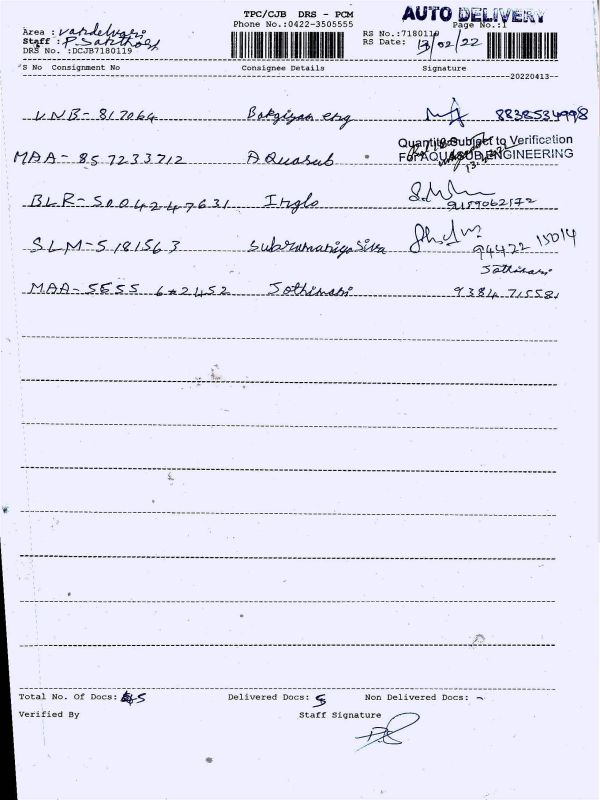 TPC/CJB DRS - PCM AUTO DELIVERY
Phone No.:0422-3505555 Page No.:1
Area :
Staff : P. Santhosh
DRS No. :DCJB7180119
RS No.:7180119
RS Date: 13/02/22
S No Consignment No Consignee Details Signature
20220413
VNB- 817064 8838534998
Quantity Subject to Verification
For AQUASUB ENGINEERING
MAA- 857233712 AQuasub
BLR- 50042247631 Inglo 9159062172
SLM-5181563 Subramaniya Siva 94422 15014
Jothimani
MAA- 5555 642452 Jothimani 9384 715581
Total No. Of Docs: 5 Delivered Docs: 5 Non Delivered Docs: -
Verified By Staff Signature